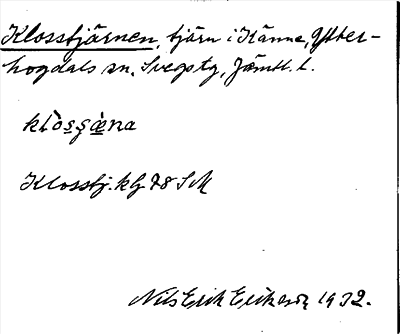 Klosstjärnen, tjärn i Känne, Ytter-
hogdals sn, Svegs tg, Jämtl. l.
klòsşæ̀na
Klosstj. kbl 78 SM
Nils Erik Erikson 1932.